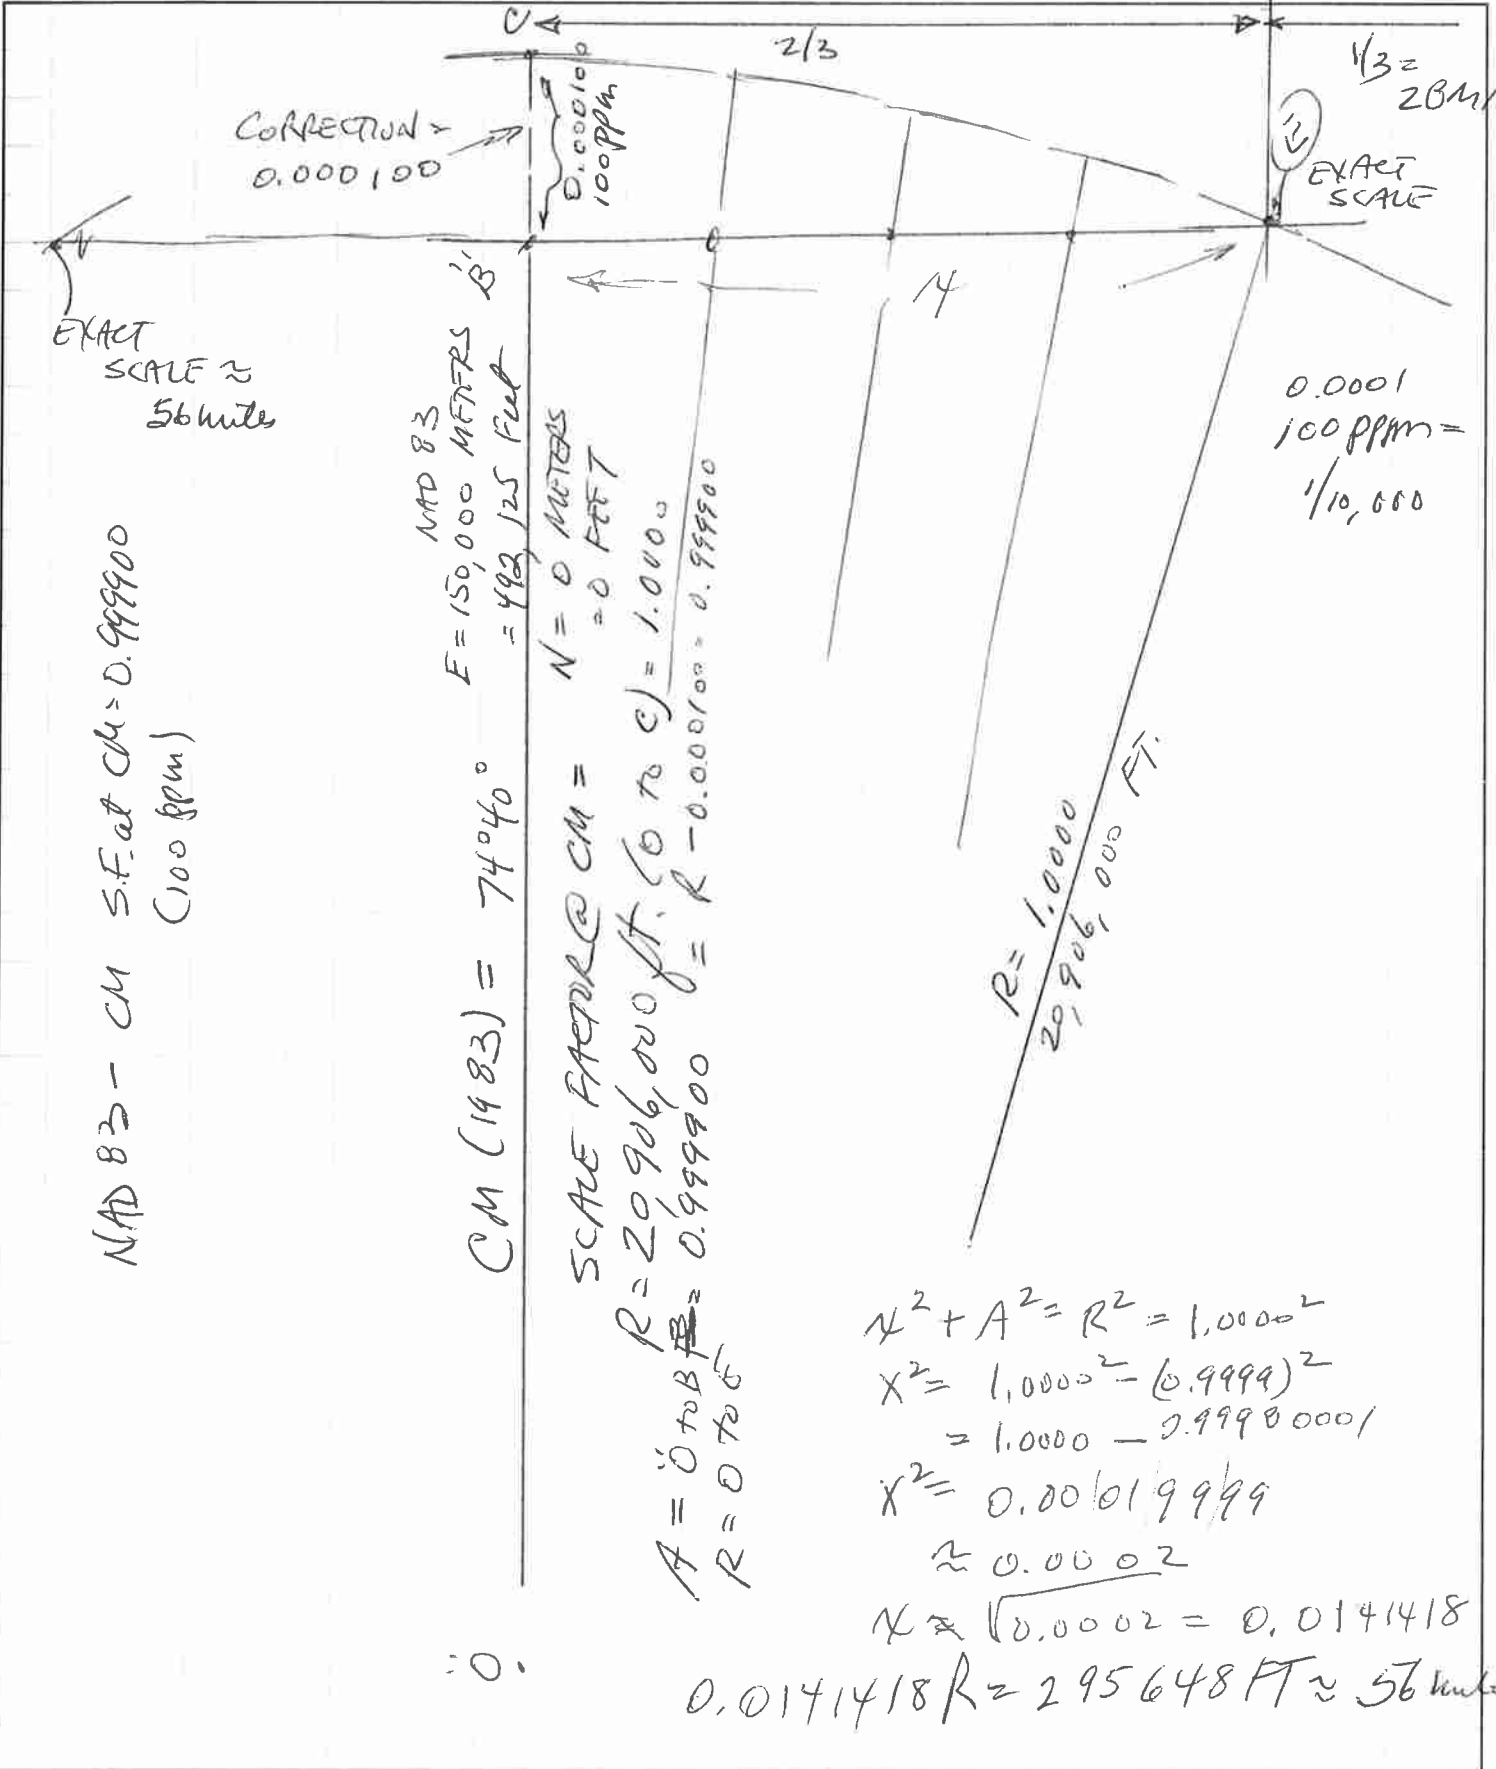 C
2/3
1/3 =
28 MI
CORRECTION =
0.000100
0.000100
100 ppm
EXACT
SCALE
EXACT
SCALE ≈
56 miles
"B
X
0.0001
100 ppm =
1/10,000
NAD 83 - CM S.F. at CM = 0.999900
(100 ppm)
NAD 83
E = 150,000 METERS
= 492,125 Feet
CM (1983) = 74°40°
N = 0 METERS
= 0 FEET
SCALE FACTOR @ CM =
R = 20,906,000 ft. (0 to C) = 1.0000
A = 0 to B = 0.999900 = R - 0.000100 = 0.999900
R = 0 to C
R = 1.0000
20,906,000 FT.
X² + A² = R² = 1.0000²
X² = 1.0000² - (0.9999)²
= 1.0000 - 0.99980001
X² = 0.00019999
≈ 0.0002
X ≈ √0.0002 = 0.0141418
0.0141418 R = 295648 FT ≈ 56 miles
"0"